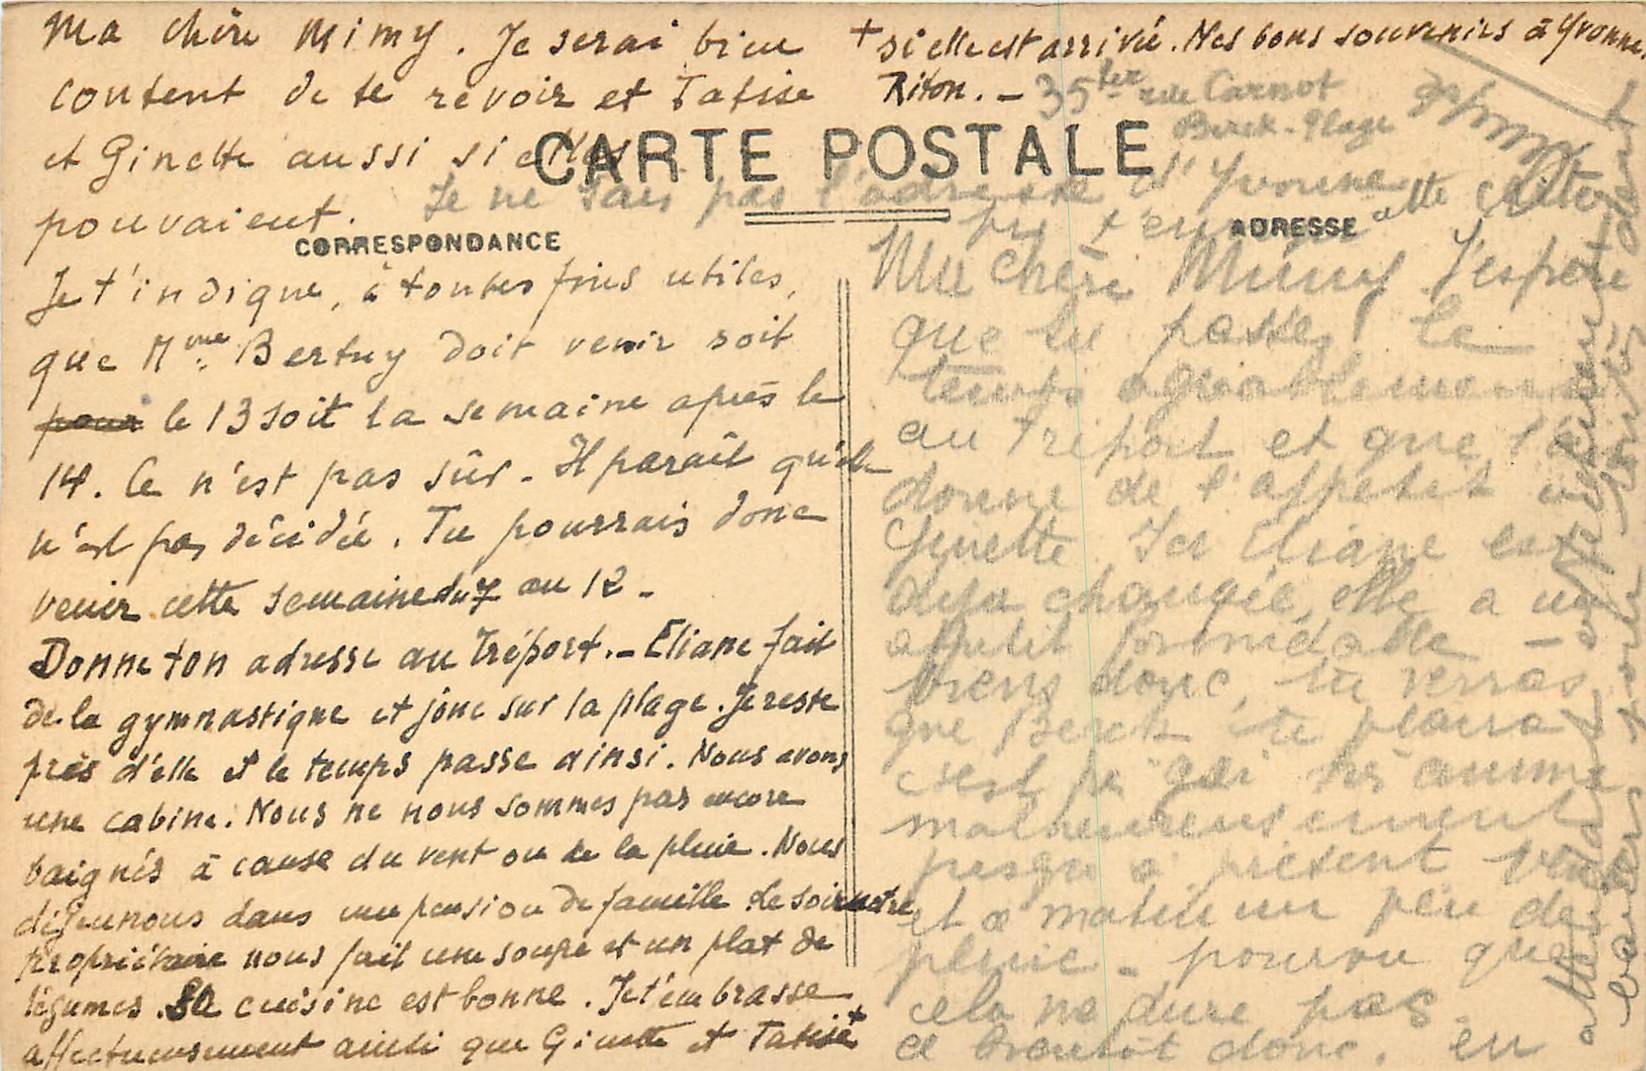 Ma chère Mimy. Je serai bien
content de te revoir et Tatise
et Ginette aussi si elles
pouvaient.
CARTE POSTALE
CORRESPONDANCE
ADRESSE
Je t'indique, à toutes fins utiles,
que Mme Bertuy doit venir soit
pour le 13 soit la semaine après le
14. Ce n'est pas sûr - Il paraît qu'elle
n'est pas décidée. Tu pourrais donc
venir cette semaine du 7 au 12 -
Donne ton adresse au Tréport. - Eliane fait
de la gymnastique et joue sur la plage. Je reste
près d'elle et le temps passe ainsi. Nous avons
une cabine. Nous ne nous sommes pas encore
baignés à cause du vent ou de la pluie. Nous
déjeunons dans une pension de famille le soir notre
propriétaire nous fait une soupe et un plat de
légumes. Sa cuisine est bonne. Je t'embrasse
affectueusement ainsi que Ginette et Tatise +
+ si elle est arrivée. Mes bons souvenirs à Yvonne.
Riton. -
35 ter rue Carnot
Berck-Plage
Je ne sais pas l'adresse d'Yvonne
Ma chère Mimy J'espère
que tu passes le
temps agréablement
au Tréport et que l'air
donne de l'appétit à
Ginette. Ici Eliane est
déjà changée, elle a un
appétit formidable -
Viens donc, tu verras
que Berck te plaira
c'est gai très animé
malheureusement
jusqu'à présent vent
et ce matin un peu de
pluie - pourvu que
cela ne dure pas.
A bientôt donc. en